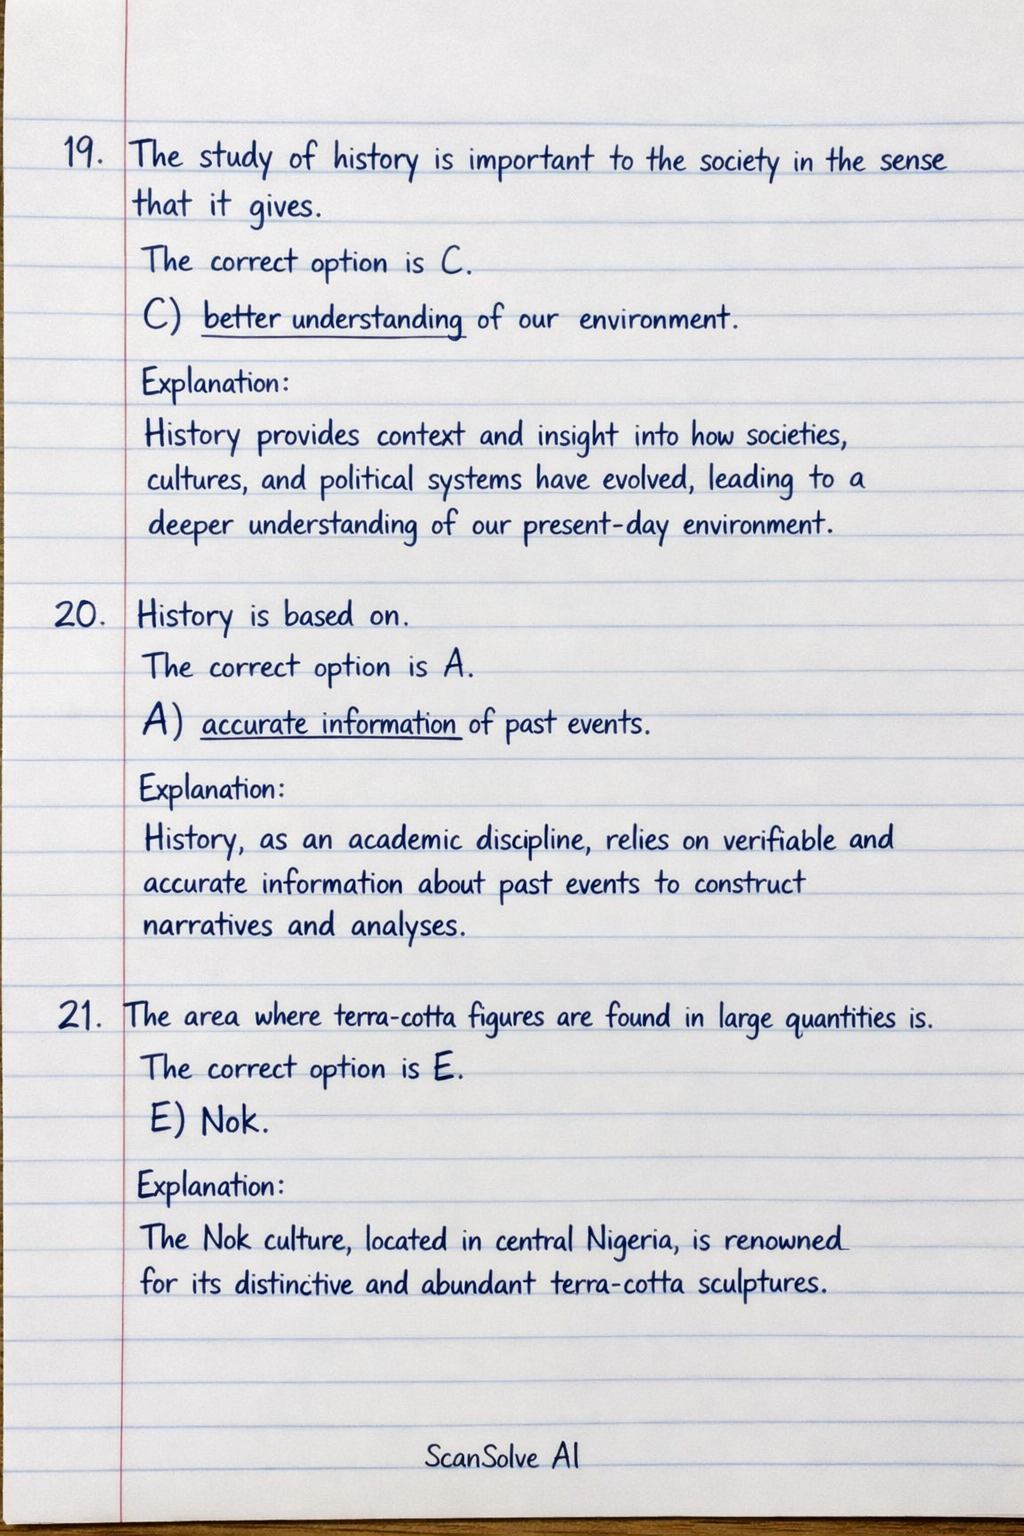 19. The study of history is important to the society in the sense
that it gives.
The correct option is C.
C) better understanding of our environment.
Explanation:
History provides context and insight into how societies,
cultures, and political systems have evolved, leading to a
deeper understanding of our present-day environment.
20. History is based on.
The correct option is A.
A) accurate information of past events.
Explanation:
History, as an academic discipline, relies on verifiable and
accurate information about past events to construct
narratives and analyses.
21. The area where terra-cotta figures are found in large quantities is.
The correct option is E.
E) Nok.
Explanation:
The Nok culture, located in central Nigeria, is renowned
for its distinctive and abundant terra-cotta sculptures.
ScanSolve AI